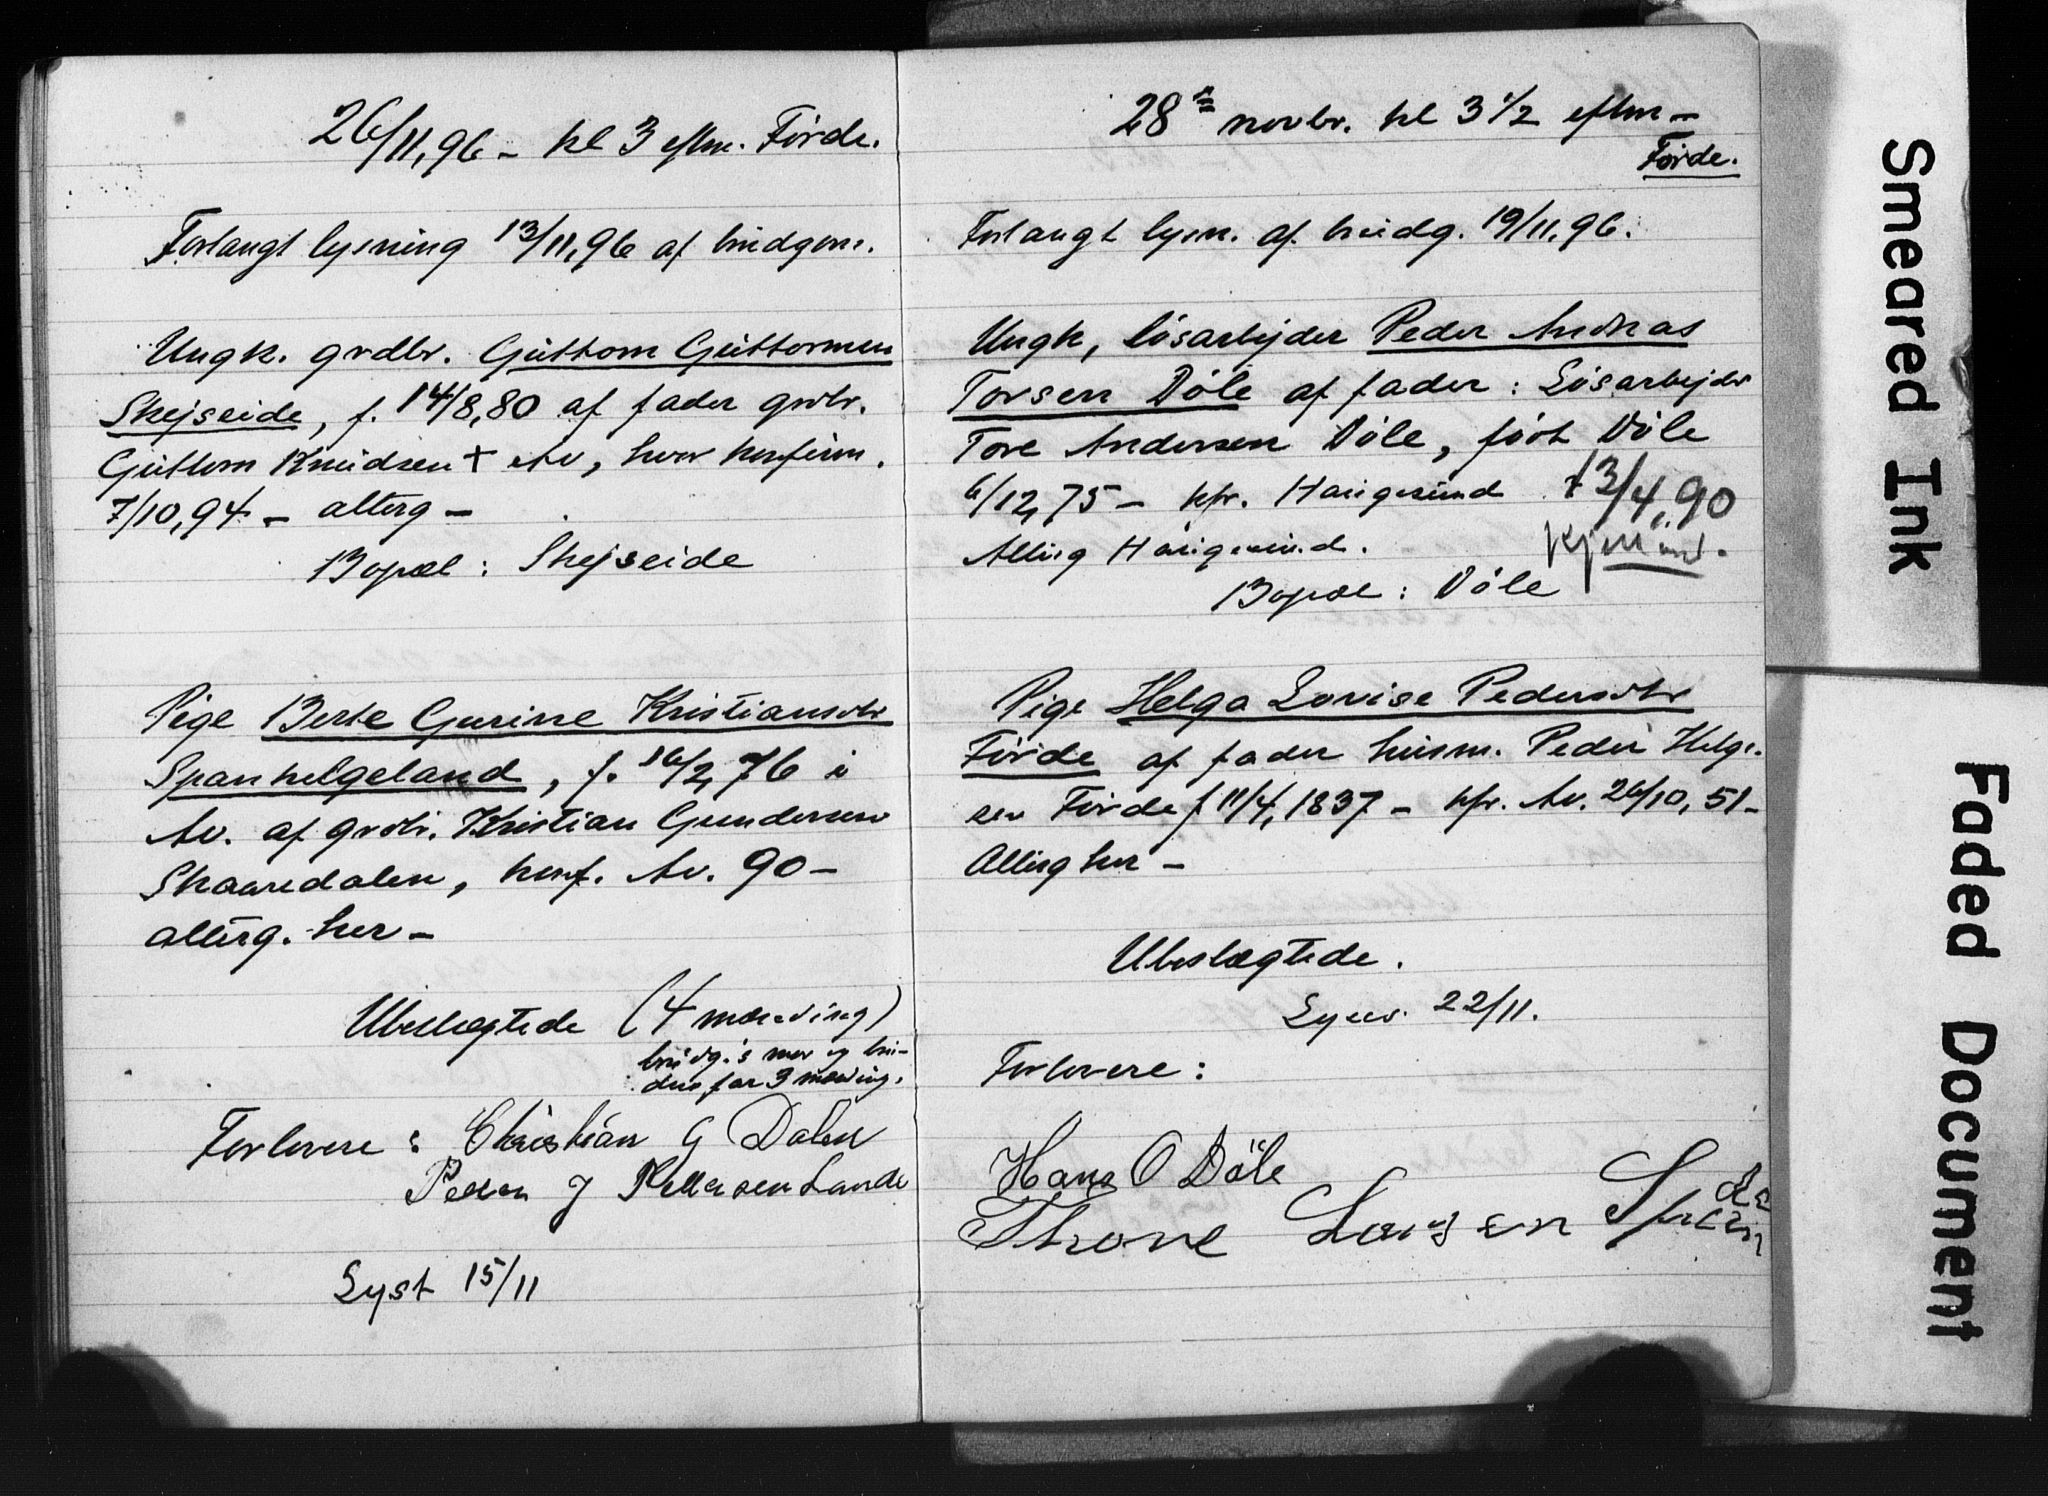 26/11, 96 – kl 3 eftm. Förde.
Forlangt lysning 13/11, 96 af brudgom.
Ungk. grdbr. Guttorm Guttormsen
Skejseide, f. 14/8, 80 af fader grdbr.
Guttorm Knudsen + Av, hvor konfirm.
7/10, 94 – alterg –
Bopæl : Skejseide
Pige Berte Gurine Kristiansdtr
Spanhelgeland, f. 16/2, 76 i
Av. af grdbr. Kristian Gundersen
Skaaredalen, konf. Av. 90 –
alterg. her –
Ubeslægtede (4 menning)
brudg.'s mor og bru-
dens far 3 menning.
Forlovere : Christian G Dalen
Peder J Pedersen Lande
Lyst 15/11
28 novbr. kl 3 1/2 eftm –
Förde.
Forlangt lysn. af brudg. 19/11, 96.
Ungk, lösarbejder Peder Andreas
Torsen Döle af fader : Lösarbejder
Tore Andersen Döle, född Döle
6/12, 75 – kfr. Haugesund 13/4, 90
Alterg Haugesund.
Bopæl : Döle
Pige Helga Lovise Pedersdtr
Förde af fader husm. Peder Helge-
sen Förde f 11/4, 1837 – kfr. Av. 26/10, 51 –
Alterg her –
Ubeslægtede.
Lyses. 22/11.
Forlovere :
Hans O Döle
Throne Larsen
Smeared Ink
Faded Document